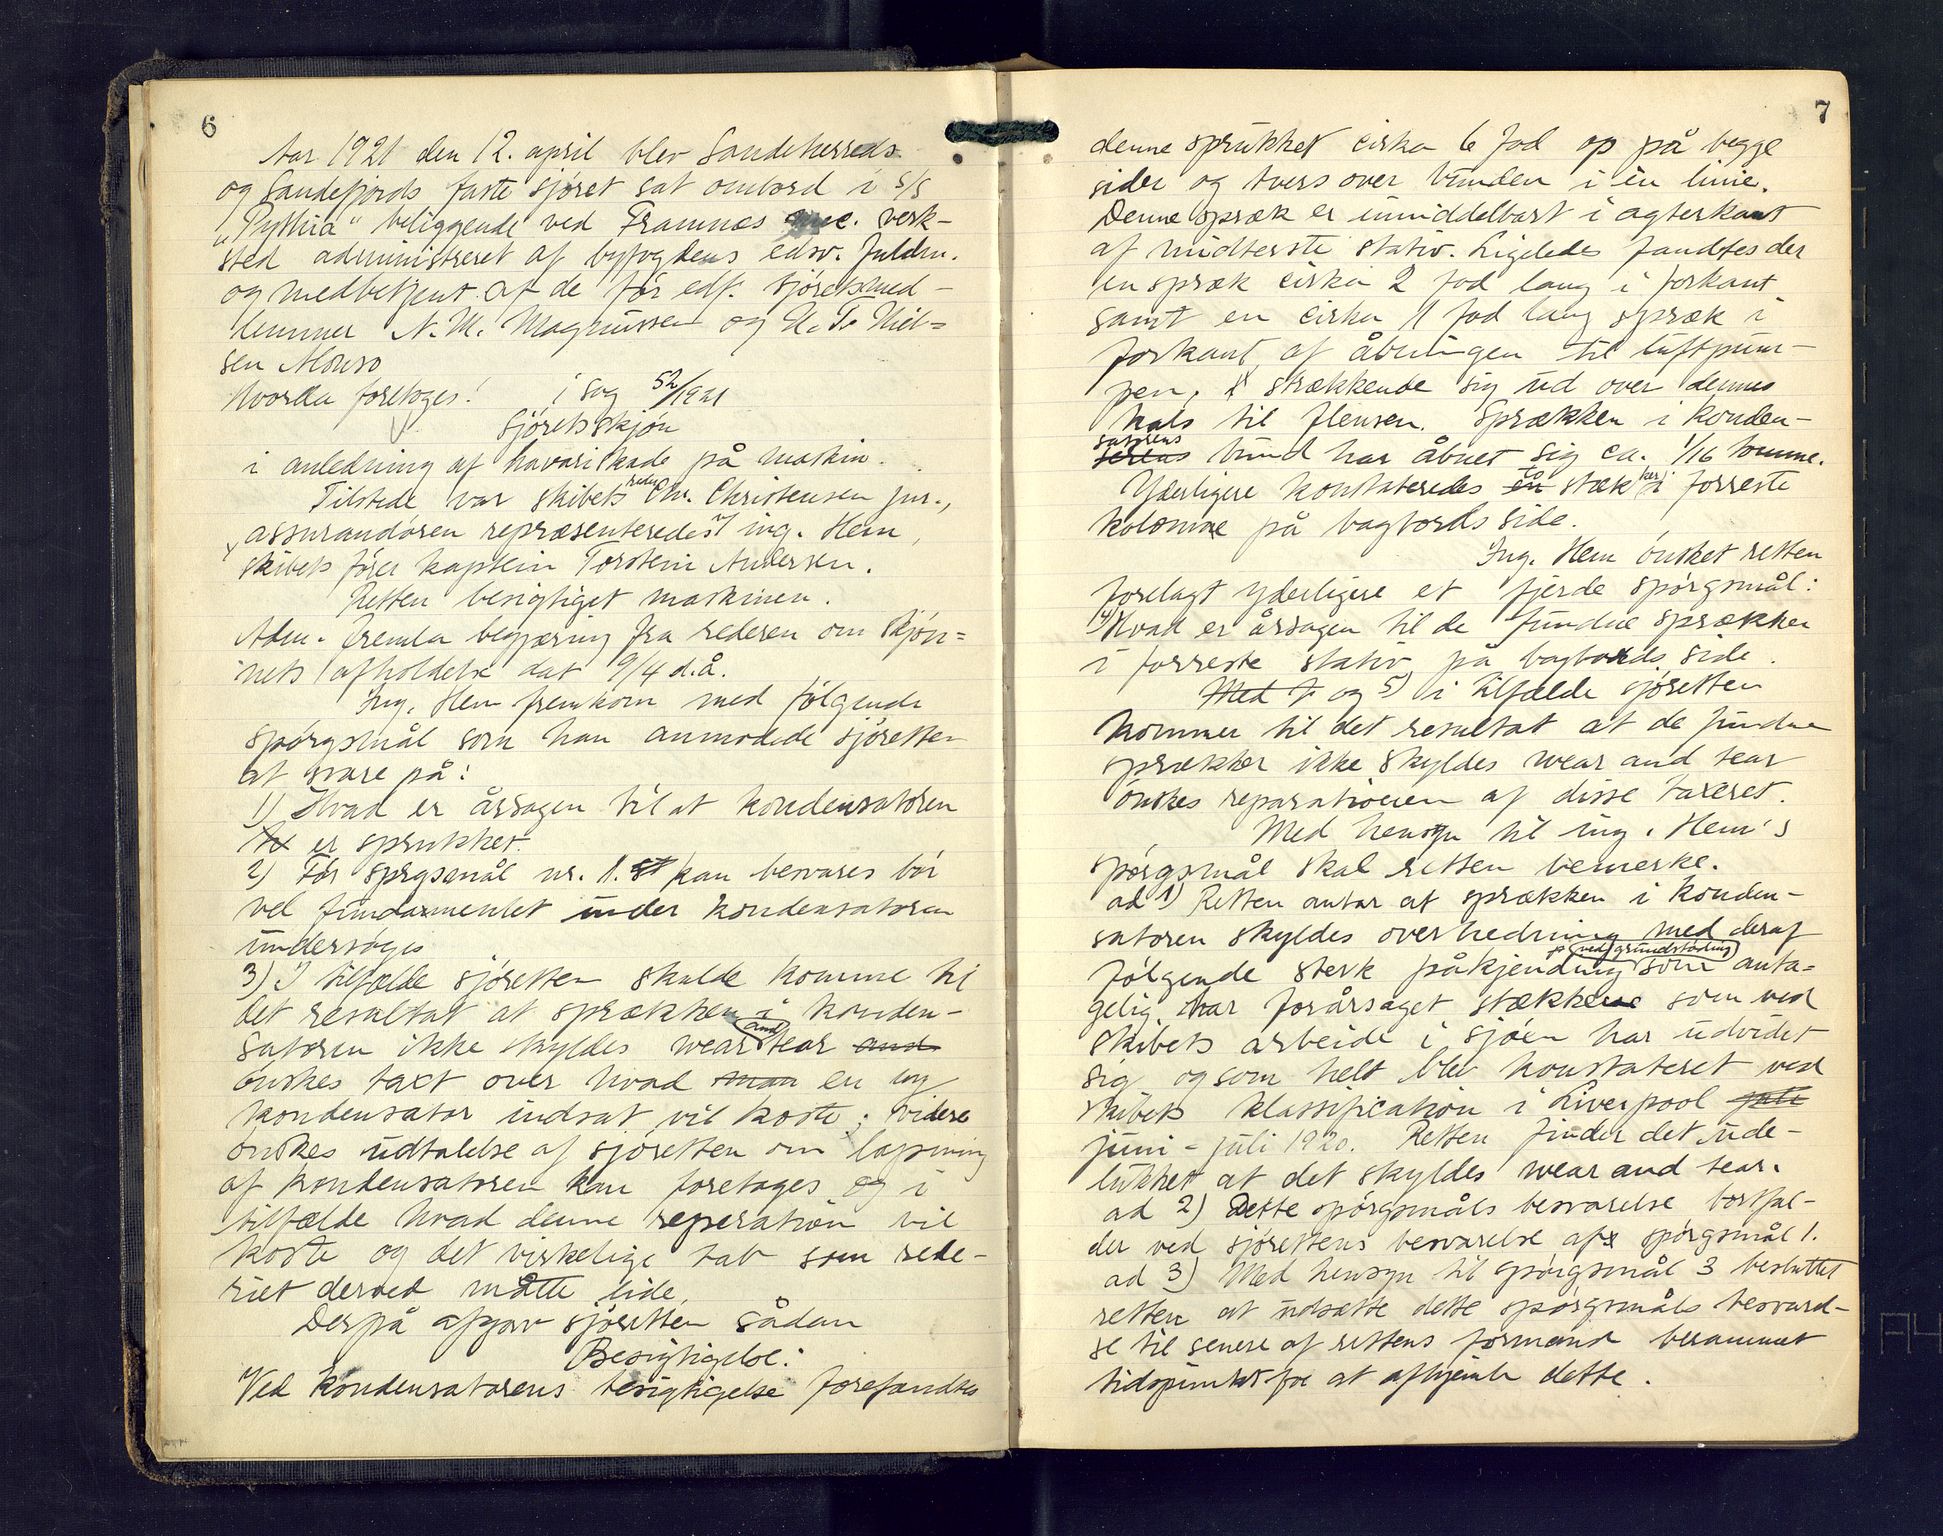 6
Aar 1921 den 12. april blev Sandeherreds
og Sandefjords faste sjöret sat ombord i s/s
"Pythia" beliggende ved Framnæs mec. verk-
sted administreret af byfogdens edsv. fuldm.
og medbetjent af de før edf. sjöretsmed-
lemmer N. M. Magnussen og H. T. Niel-
sen Monso
Hvorda foretoges: i sag 52/1921
Sjöretsskjön
i anledning af havariskade på maskin.
Tilstede var skibets reder Chr. Christensen jnr.,
assurandören repræsenteredes v/ ing. Hem,
skibets förer kaptein Torstein Andersen.
Retten besigtiget maskinen.
Adm. fremla begjæring fra rederen om skjön-
nets afholdelse dat 9/4 d.å.
Ing. Hem fremkom med fölgende
spörgsmål som han anmodede sjöretten
at svare på:
1) Hvad er årsagen til at kondensatoren
er sprukket.
2) För sprgsmål nr. 1. kan besvares bör
vel fundamentet under kondensatoren
undersöges
3) I tilfælde sjöretten skulde komme til
det resultat at sprækken i konden-
satoren ikke skyldes wear and tear and
önskes taxt over hvad man en ny
kondensator indsat vil koste; videre
önskes udtalelse af sjöretten om lapning
af kondensatoren kan foretages og i
tilfælde hvad denne reperation vil
koste og det virkelige tab som rede-
riet derved måtte lide.
Derpå afgav sjöretten sådan
Besigtigelse:
Ved kondensatorens besigtigelse forefandtes
7
denne sprukket cirka 6 fod op på begge
sider og tvers over bunden i én linie.
Denne spræk er umiddelbart i agterkant
af midterste stativ. Ligeledes fandtes der
en spræk cirka 2 fod lang i forkant
samt en cirka 1 fod lang spræk i
forkant af åbningen til luftpum-
pen, strækkende sig ud over dennes
hals til flensen. Sprækken i konden-
satorens
serens bund har åbnet sig ca. 1/16 tomme.
Yderligere konstateredes en to stæk ker i forreste
kolonne på bagbords side.
Ing. Hem önsket retten
forelagt yderligere et fjerde spörgsmål:
4) Hvad er årsagen til de fundne sprækker
i forreste stativ på bagbords side.
Med f. og 5) i tilfælde sjöretten
kommer til det resultat at de fundne
sprækker ikke skyldes wear and tear
önskes reparationen af disse taxeret.
Med hensyn til ing. Hem's
spörgsmål skal retten bemerke.
ad 1) Retten antar at sprækken i konden-
satoren skyldes overhedning med deraf
ved grundstöding
fölgende sterk påkjending som anta-
gelig har forårsaget stækkene som ved
skibets arbeide i sjöen har udvidet
sig og som helt blev konstateret ved
skibets klassification i Liverpool juli
juni - juli 1920. Retten finder det ude-
lukket at det skyldes wear and tear.
ad 2) Dette spörgsmåls besvarelse bortfal-
der ved sjörettens besvarelse af spörgsmål 1.
ad 3) Med hensyn til spörgsmål 3 besluttet
retten at udsætte dette spörgsmåls besvarel-
se til senere af rettens formand berammet
tidspunkt for at afhjemle dette.